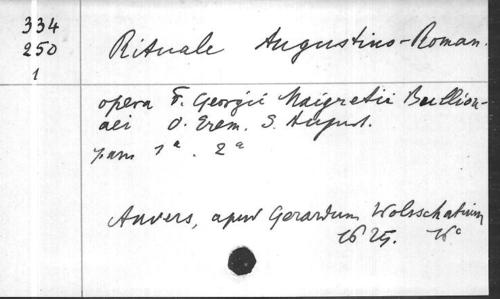 334
250
1
Rituale Augustino-Roman.
opera F. Georgii Maigretii Bullion-
aei O. Erem. S. August.
pars 1a. 2a
Anvers, apud Gerardum Wolsschatium
1625. 16°